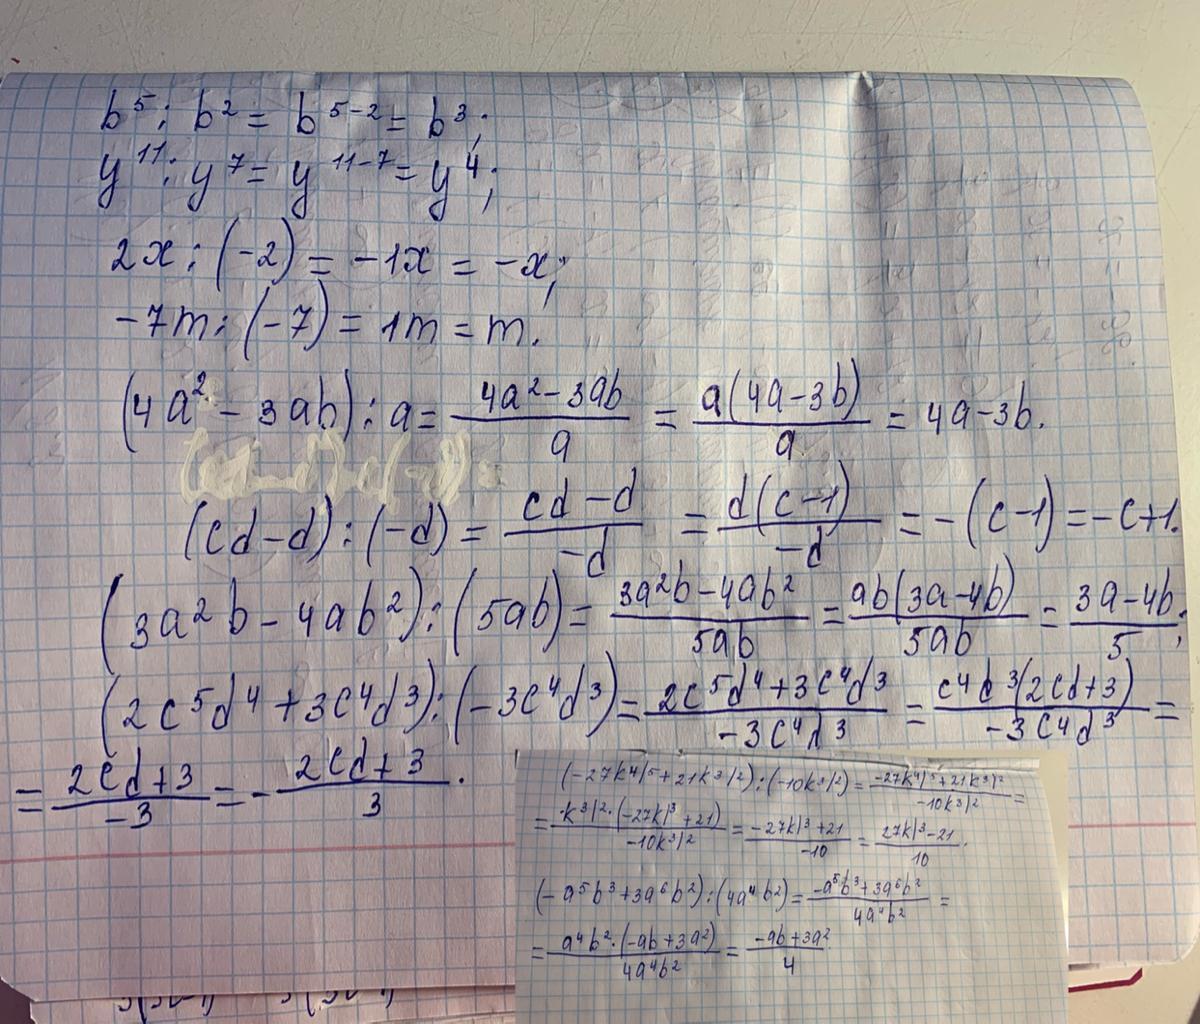 b⁵ : b² = b⁵⁻² = b³;
y¹¹ : y⁷ = y¹¹⁻⁷ = y⁴;
2x : (-2) = -1x = -x;
-7m : (-7) = 1m = m.
(4a² - 3ab) : a = \frac{4a² - 3ab}{a} = \frac{a(4a - 3b)}{a} = 4a - 3b.
(cd - d) : (-d) = \frac{cd - d}{-d} = \frac{d(c - 1)}{-d} = -(c - 1) = -c + 1.
(3a²b - 4ab²) : (5ab) = \frac{3a²b - 4ab²}{5ab} = \frac{ab(3a - 4b)}{5ab} = \frac{3a - 4b}{5};
(2c⁵d⁴ + 3c⁴d³) : (-3c⁴d³) = \frac{2c⁵d⁴ + 3c⁴d³}{-3c⁴d³} = \frac{c⁴d³(2cd + 3)}{-3c⁴d³} =
= \frac{2cd + 3}{-3} = -\frac{2cd + 3}{3}.
(-27k⁴l⁵ + 21k³l²) : (-10k³l²) = \frac{-27k⁴l⁵ + 21k³l²}{-10k³l²} =
= \frac{k³l² · (-27kl³ + 21)}{-10k³l²} = \frac{-27kl³ + 21}{-10} = \frac{27kl³ - 21}{10}.
(-a⁵b³ + 3a⁶b²) : (4a⁴b²) = \frac{-a⁵b³ + 3a⁶b²}{4a⁴b²} =
= \frac{a⁴b² · (-ab + 3a²)}{4a⁴b²} = \frac{-ab + 3a²}{4}